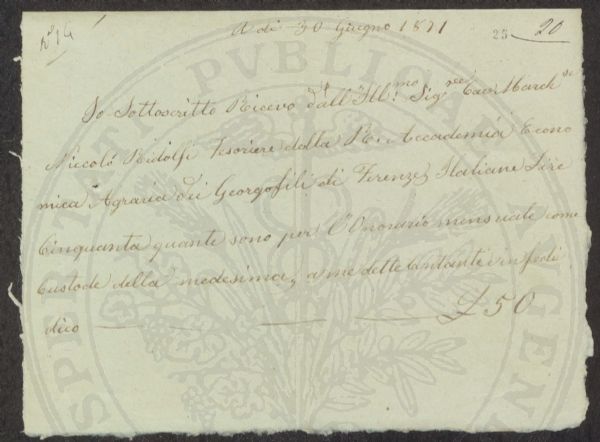 N° 14
A di 30 Giugno 1871
23 20
Io Sottoscritto Ricevo dall' Ill:mo Sigre Cav: March:se
Niccolò Ridolfi Tesoriere della R. Accademia Econo
mica Agraria dei Georgofili di Firenze, Italiane Lire
Cinquanta quante sono per l'Onorario mensuale come
Custode della medesima, a me dette contanti in fede
dico £ 50
PROSPERITATI PUBLICAE AUGENDAE